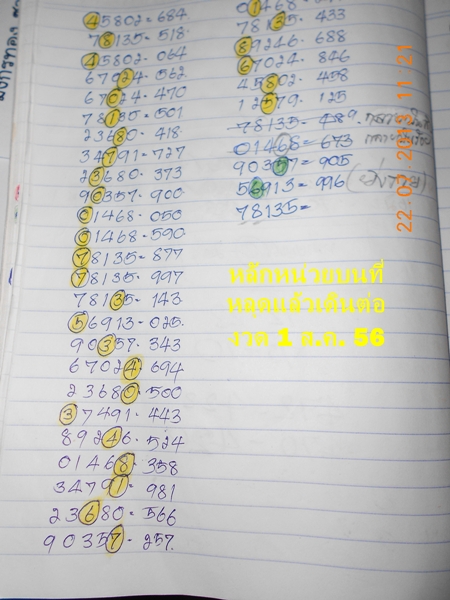 45802 = 684
78135 = 518.
45802. 064
67924. 562
67024. 470
78135 = 501
23680. 418.
34791. 727
23680. 373
90357. 900.
01468. 050
01468. 590.
78135 = 877
78135. 997
78135. 143
56913 - 025.
90357. 343
67024. 694
23680. 500
37491. 443
89246. 524
01468. 358
34791 = 981
23680 = 566
90357 - 257.
78135. 433
89246. 688
67024. 846
45802. 458
12579. 125
78135 = 489.
01468 = 673
90357 = 905
56913 = 996
78135 =
หลักหน่วยบนที่
หลุดแล้วเดินต่อ
งวด 1 ส.ค. 56
22.07.2013 11:21